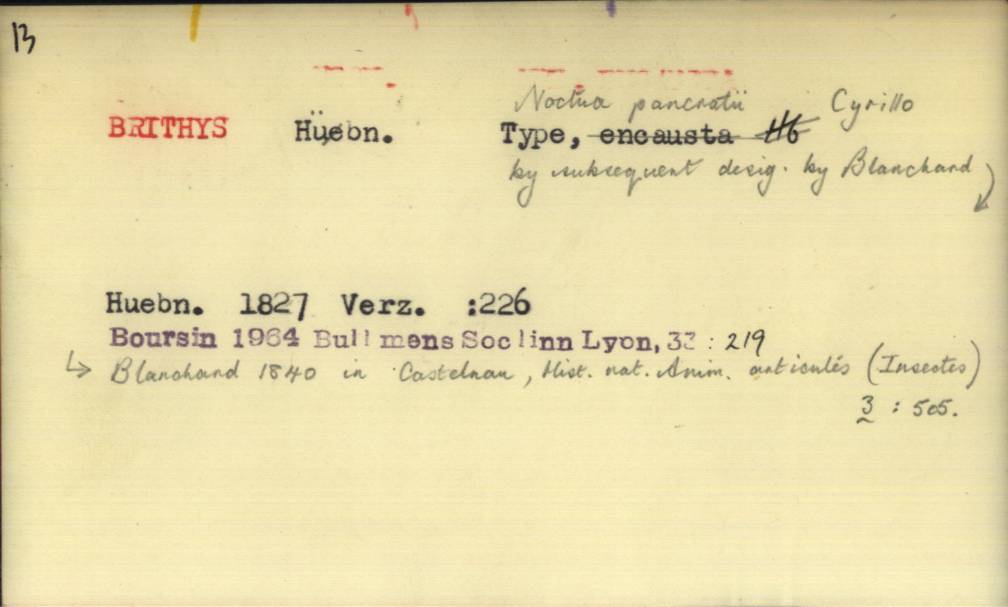 13
Noctua pancratii Cyrillo
BRITHYS Hüebn. Type, encausta Hb
by subsequent desig. by Blanchard
Huebn. 1827 Verz. :226
Boursin 1964 Bull mens Soc linn Lyon, 33 : 219
↳ Blanchard 1840 in Castelnau, Hist. nat. Anim. articulés (Insectes)
3 : 505.